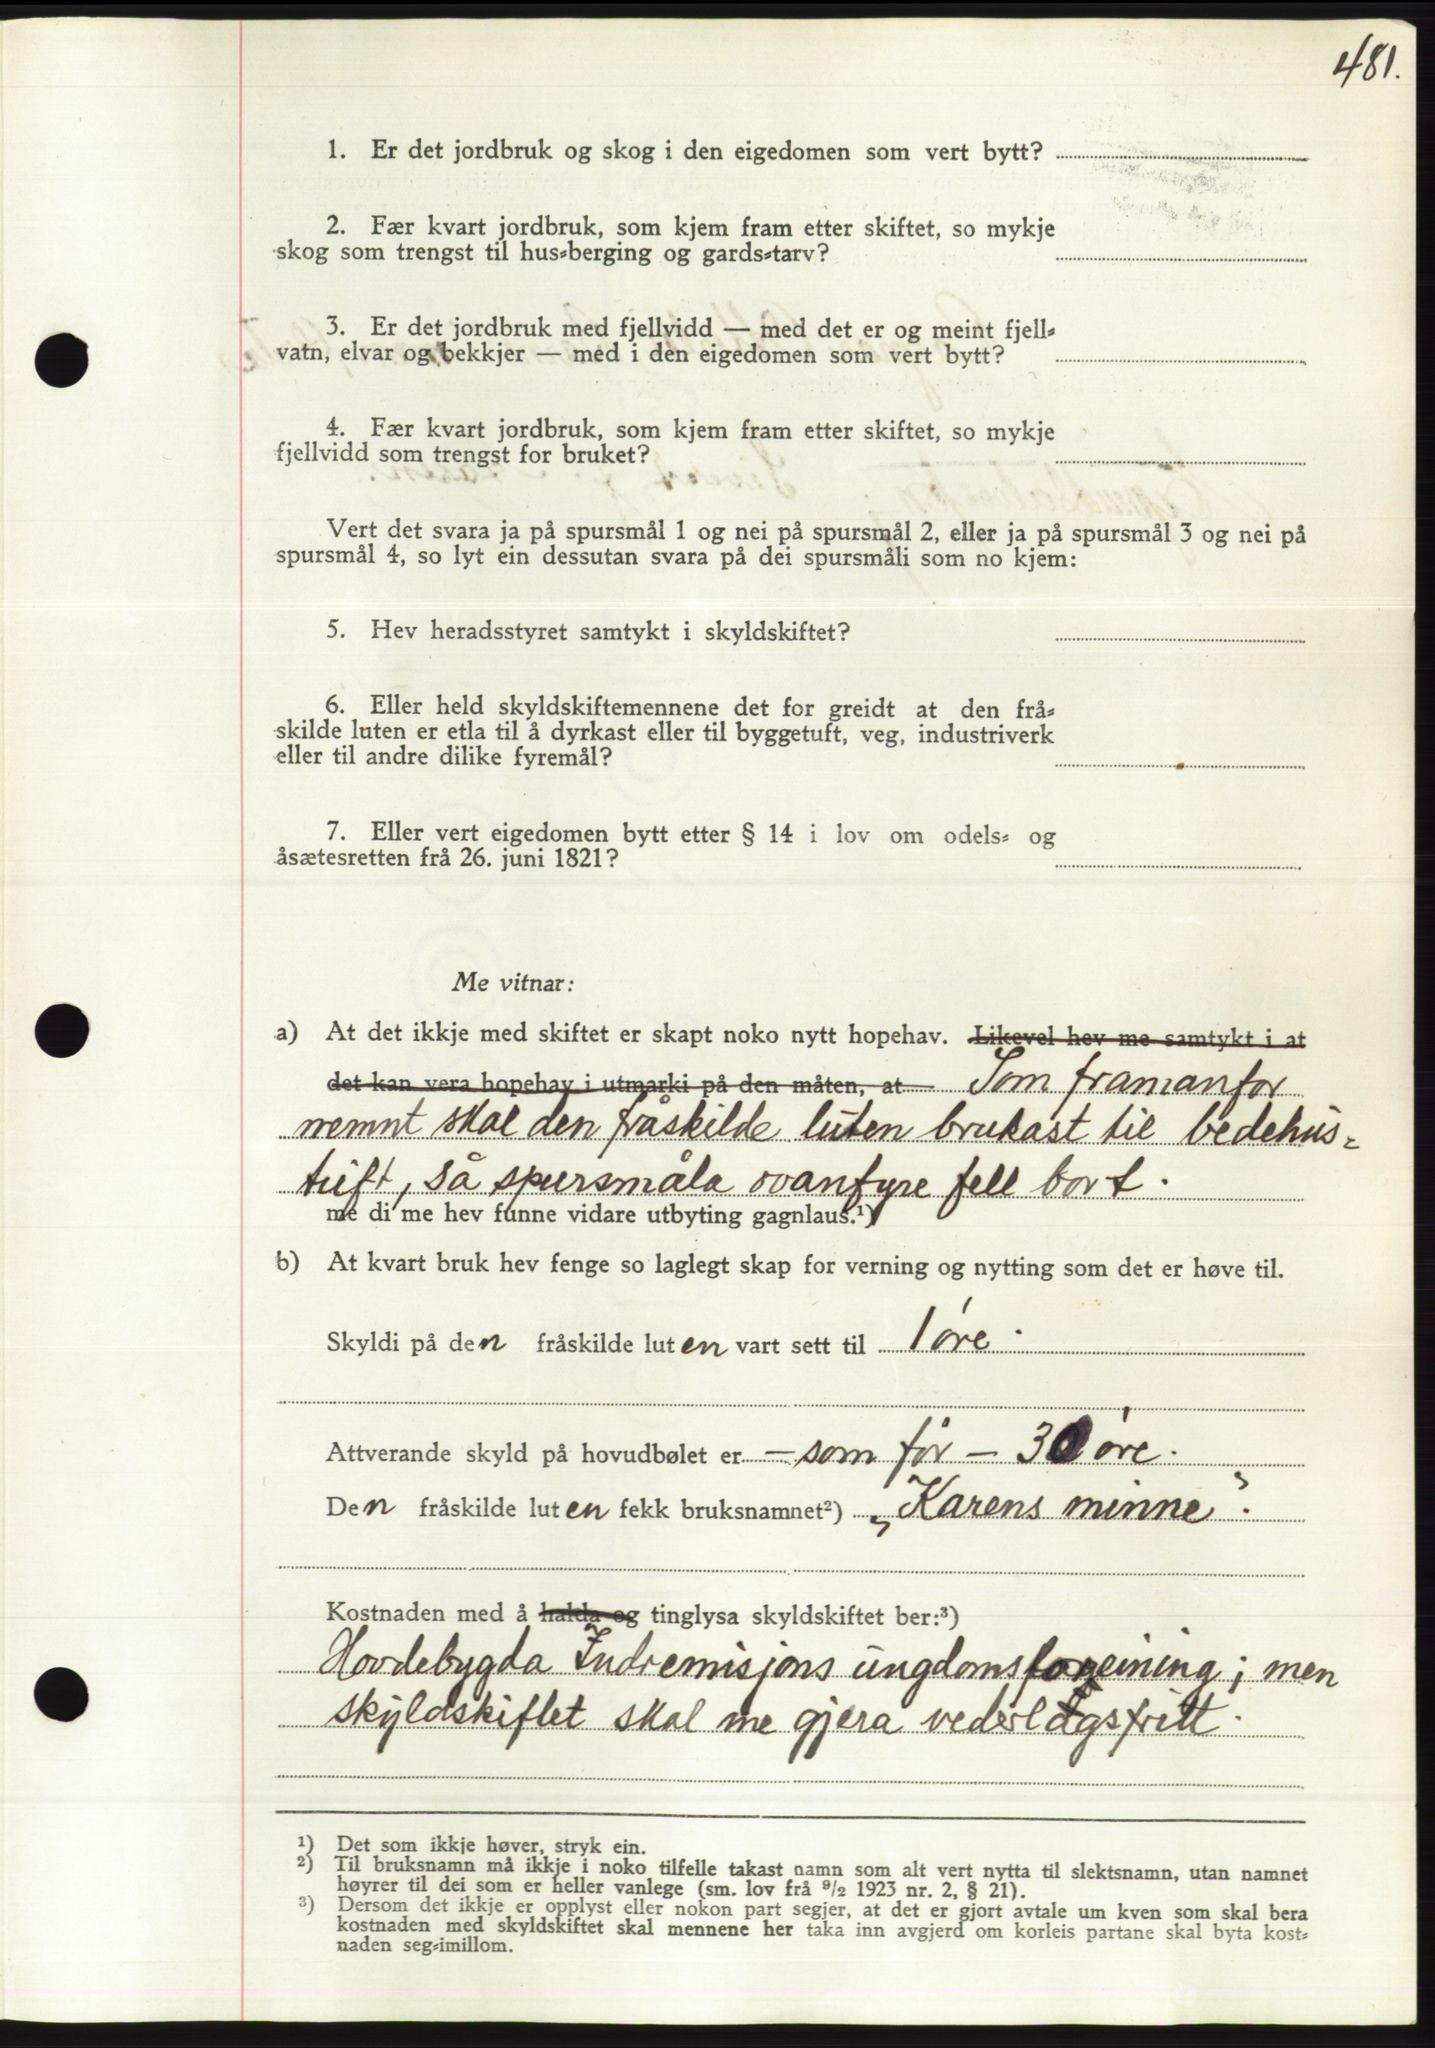 481.
1. Er det jordbruk og skog i den eigedomen som vert bytt?
2. Fær kvart jordbruk, som kjem fram etter skiftet, so mykje
skog som trengst til hus-berging og gards-tarv?
3. Er det jordbruk med fjellvidd — med det er og meint fjell-
vatn, elvar og bekkjer — med i den eigedomen som vert bytt?
4. Fær kvart jordbruk, som kjem fram etter skiftet, so mykje
fjellvidd som trengst for bruket?
Vert det svara ja på spursmål 1 og nei på spursmål 2, eller ja på spursmål 3 og nei på
spursmål 4, so lyt ein dessutan svara på dei spursmåli som no kjem:
5. Hev heradsstyret samtykt i skyldskiftet?
6. Eller held skyldskiftemennene det for greidt at den frå-
skilde luten er etla til å dyrkast eller til byggetuft, veg, industriverk
eller til andre dilike fyremål?
7. Eller vert eigedomen bytt etter § 14 i lov om odels- og
åsætesretten frå 26. juni 1821?
Me vitnar:
a) At det ikkje med skiftet er skapt noko nytt hopehav. Likevel hev me samtykt i at
det kan vera hopehav i utmarki på den måten, at Som framanfor
nemnt skal den fråskilde luten brukast til bedehus-
tuft, så spursmåla ovanfyre fell bort.
me di me hev funne vidare utbyting gagnlaus.¹)
b) At kvart bruk hev fenge so laglegt skap for verning og nytting som det er høve til.
Skyldi på den fråskilde luten vart sett til 1 øre.
Attverande skyld på hovudbølet er — som før — 30 øre.
Den fråskilde luten fekk bruksnamnet²) „Karens minne”.
Kostnaden med å halda og tinglysa skyldskiftet ber:³)
Hovdebygda Indremisjons ungdomsforeining; men
skyldskiftet skal me gjera vederlagsfritt.
¹) Det som ikkje høver, stryk ein.
²) Til bruksnamn må ikkje i noko tilfelle takast namn som alt vert nytta til slektsnamn, utan namnet
høyrer til dei som er heller vanlege (sm. lov frå ⁹/₂ 1923 nr. 2, § 21).
³) Dersom det ikkje er opplyst eller nokon part segjer, at det er gjort avtale um kven som skal bera
kostnaden med skyldskiftet skal mennene her taka inn avgjerd om korleis partane skal byta kost-
naden seg-imillom.